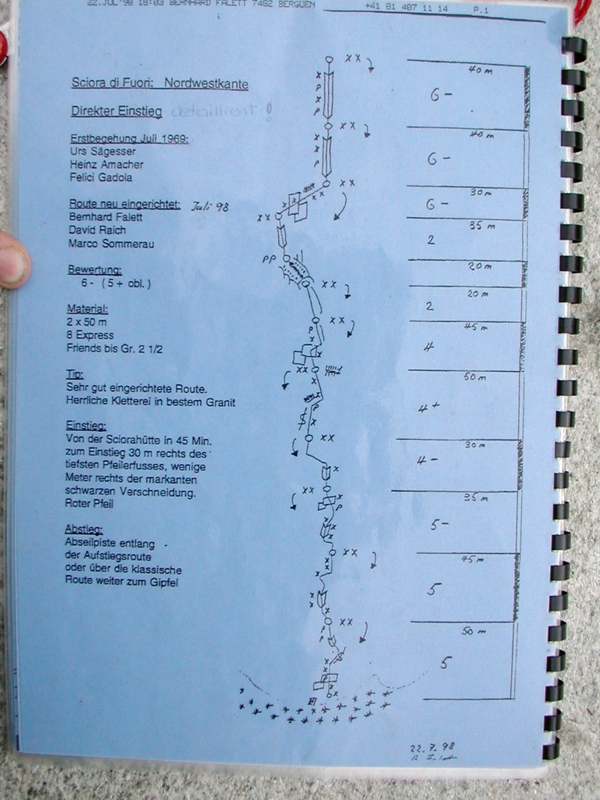 22.JUL'98 18:03 BERNHARD FALETT 7482 BERGUEN +41 81 407 11 14 P.1
Sciora di Fuori: Nordwestkante
Direkter Einstieg
Erstbegehung Juli 1969:
Urs Sägesser
Heinz Amacher
Felici Gadola
Route neu eingerichtet: Juli 98
Bernhard Falett
David Raich
Marco Sommerau
Bewertung:
6- ( 5+ obl. )
Material:
2 x 50 m
8 Express
Friends bis Gr. 2 1/2
Tip:
Sehr gut eingerichtete Route.
Herrliche Kletterei in bestem Granit
Einstieg:
Von der Sciorahütte in 45 Min.
zum Einstieg 30 m rechts des
tiefsten Pfeilerfusses, wenige
Meter rechts der markanten
schwarzen Verschneidung.
Roter Pfeil
Abstieg:
Abseilpiste entlang
der Aufstiegsroute
oder über die klassische
Route weiter zum Gipfel
40 m
6-
40 m
6-
30 m
6-
35 m
2
20 m
20 m
2
45 m
4
50 m
4+
30 m
4-
35 m
5-
45 m
5
50 m
5
22.7.98